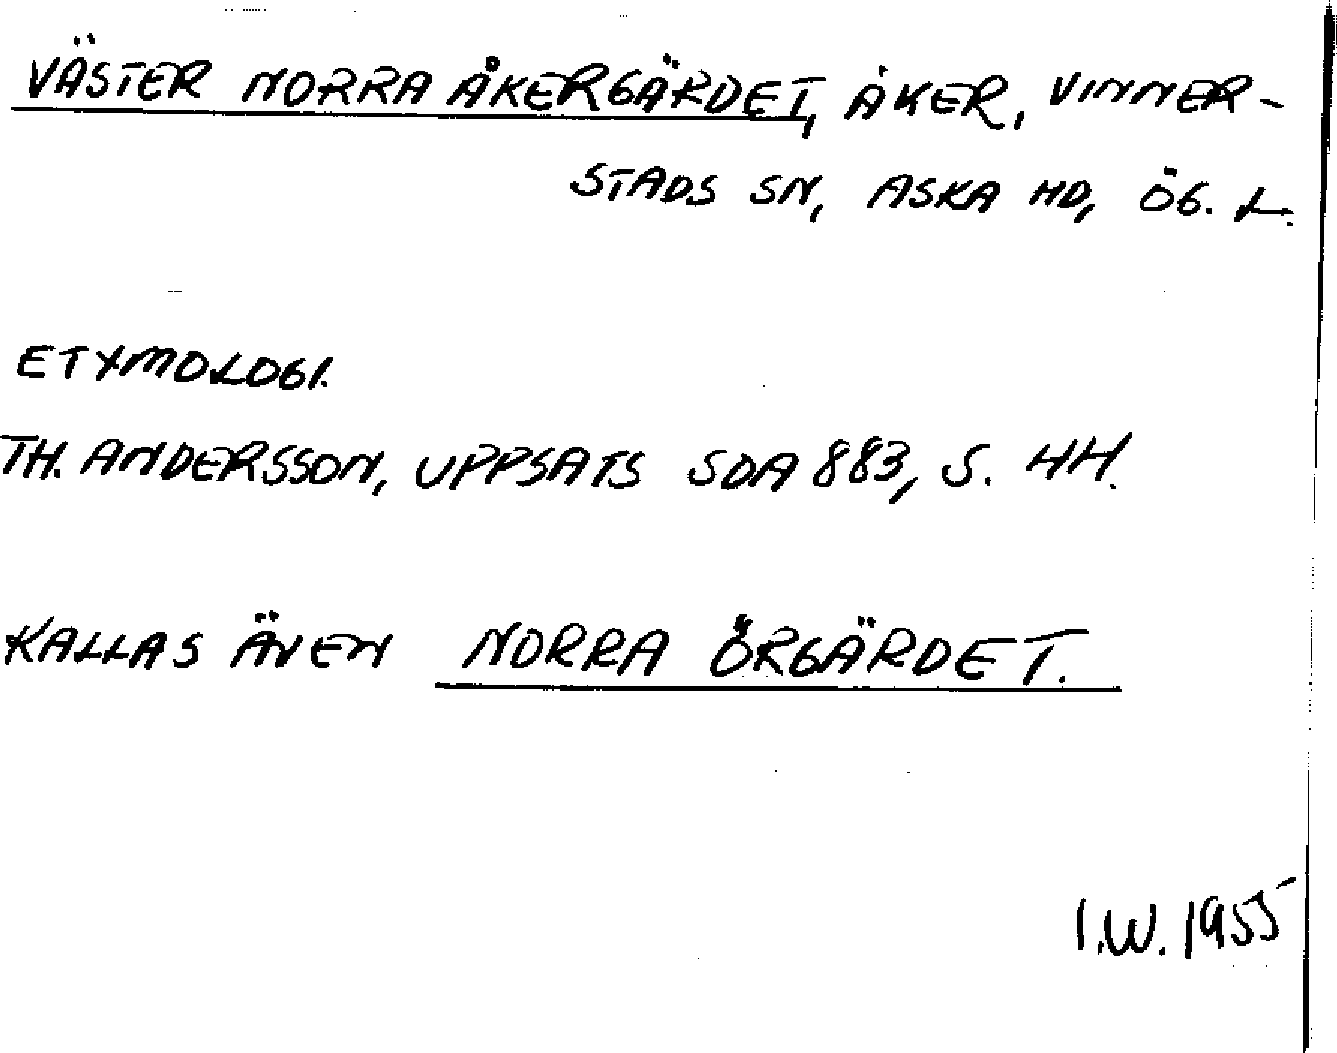 VÄSTER NORRA ÅKERGÄRDET, ÅKER, VINNER-
STADS SN, ASKA HD, ÖG. L.
ETYMOLOGI.
TH. ANDERSSON, UPPSATS SOA 883, S. 44.
KALLAS ÄVEN NORRA ÖRGÄRDET.
I.W. 1955